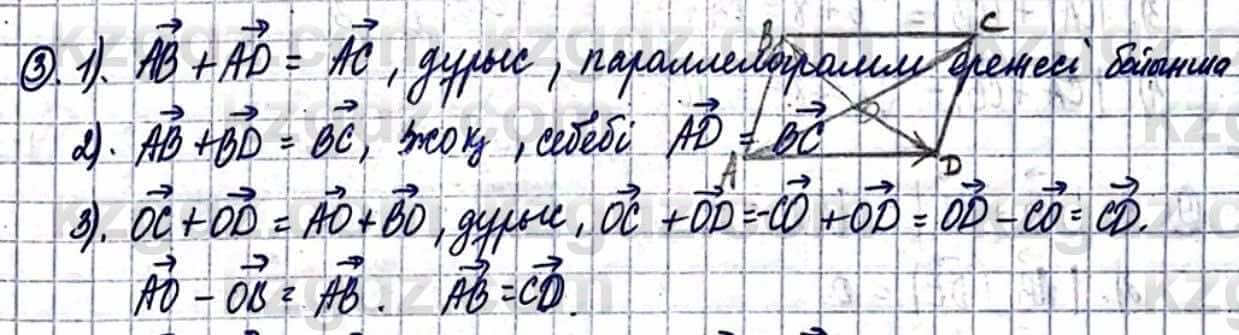 ③. 1). AB⃗ + AD⃗ = AC⃗, дурыс, параллелограмм ережесі бойынша
2). AB⃗ + BD⃗ = BC⃗, жоқ, себебі AD⃗ = BC⃗
3). OC⃗ + OD⃗ = AO⃗ + BO⃗, дурыс, OC⃗ + OD⃗ = -CO⃗ + OD⃗ = OD⃗ - CO⃗ = CD⃗.
AO⃗ - OB⃗ = AB⃗. AB⃗ = CD⃗.
B C
O
A D
kzgdz.com